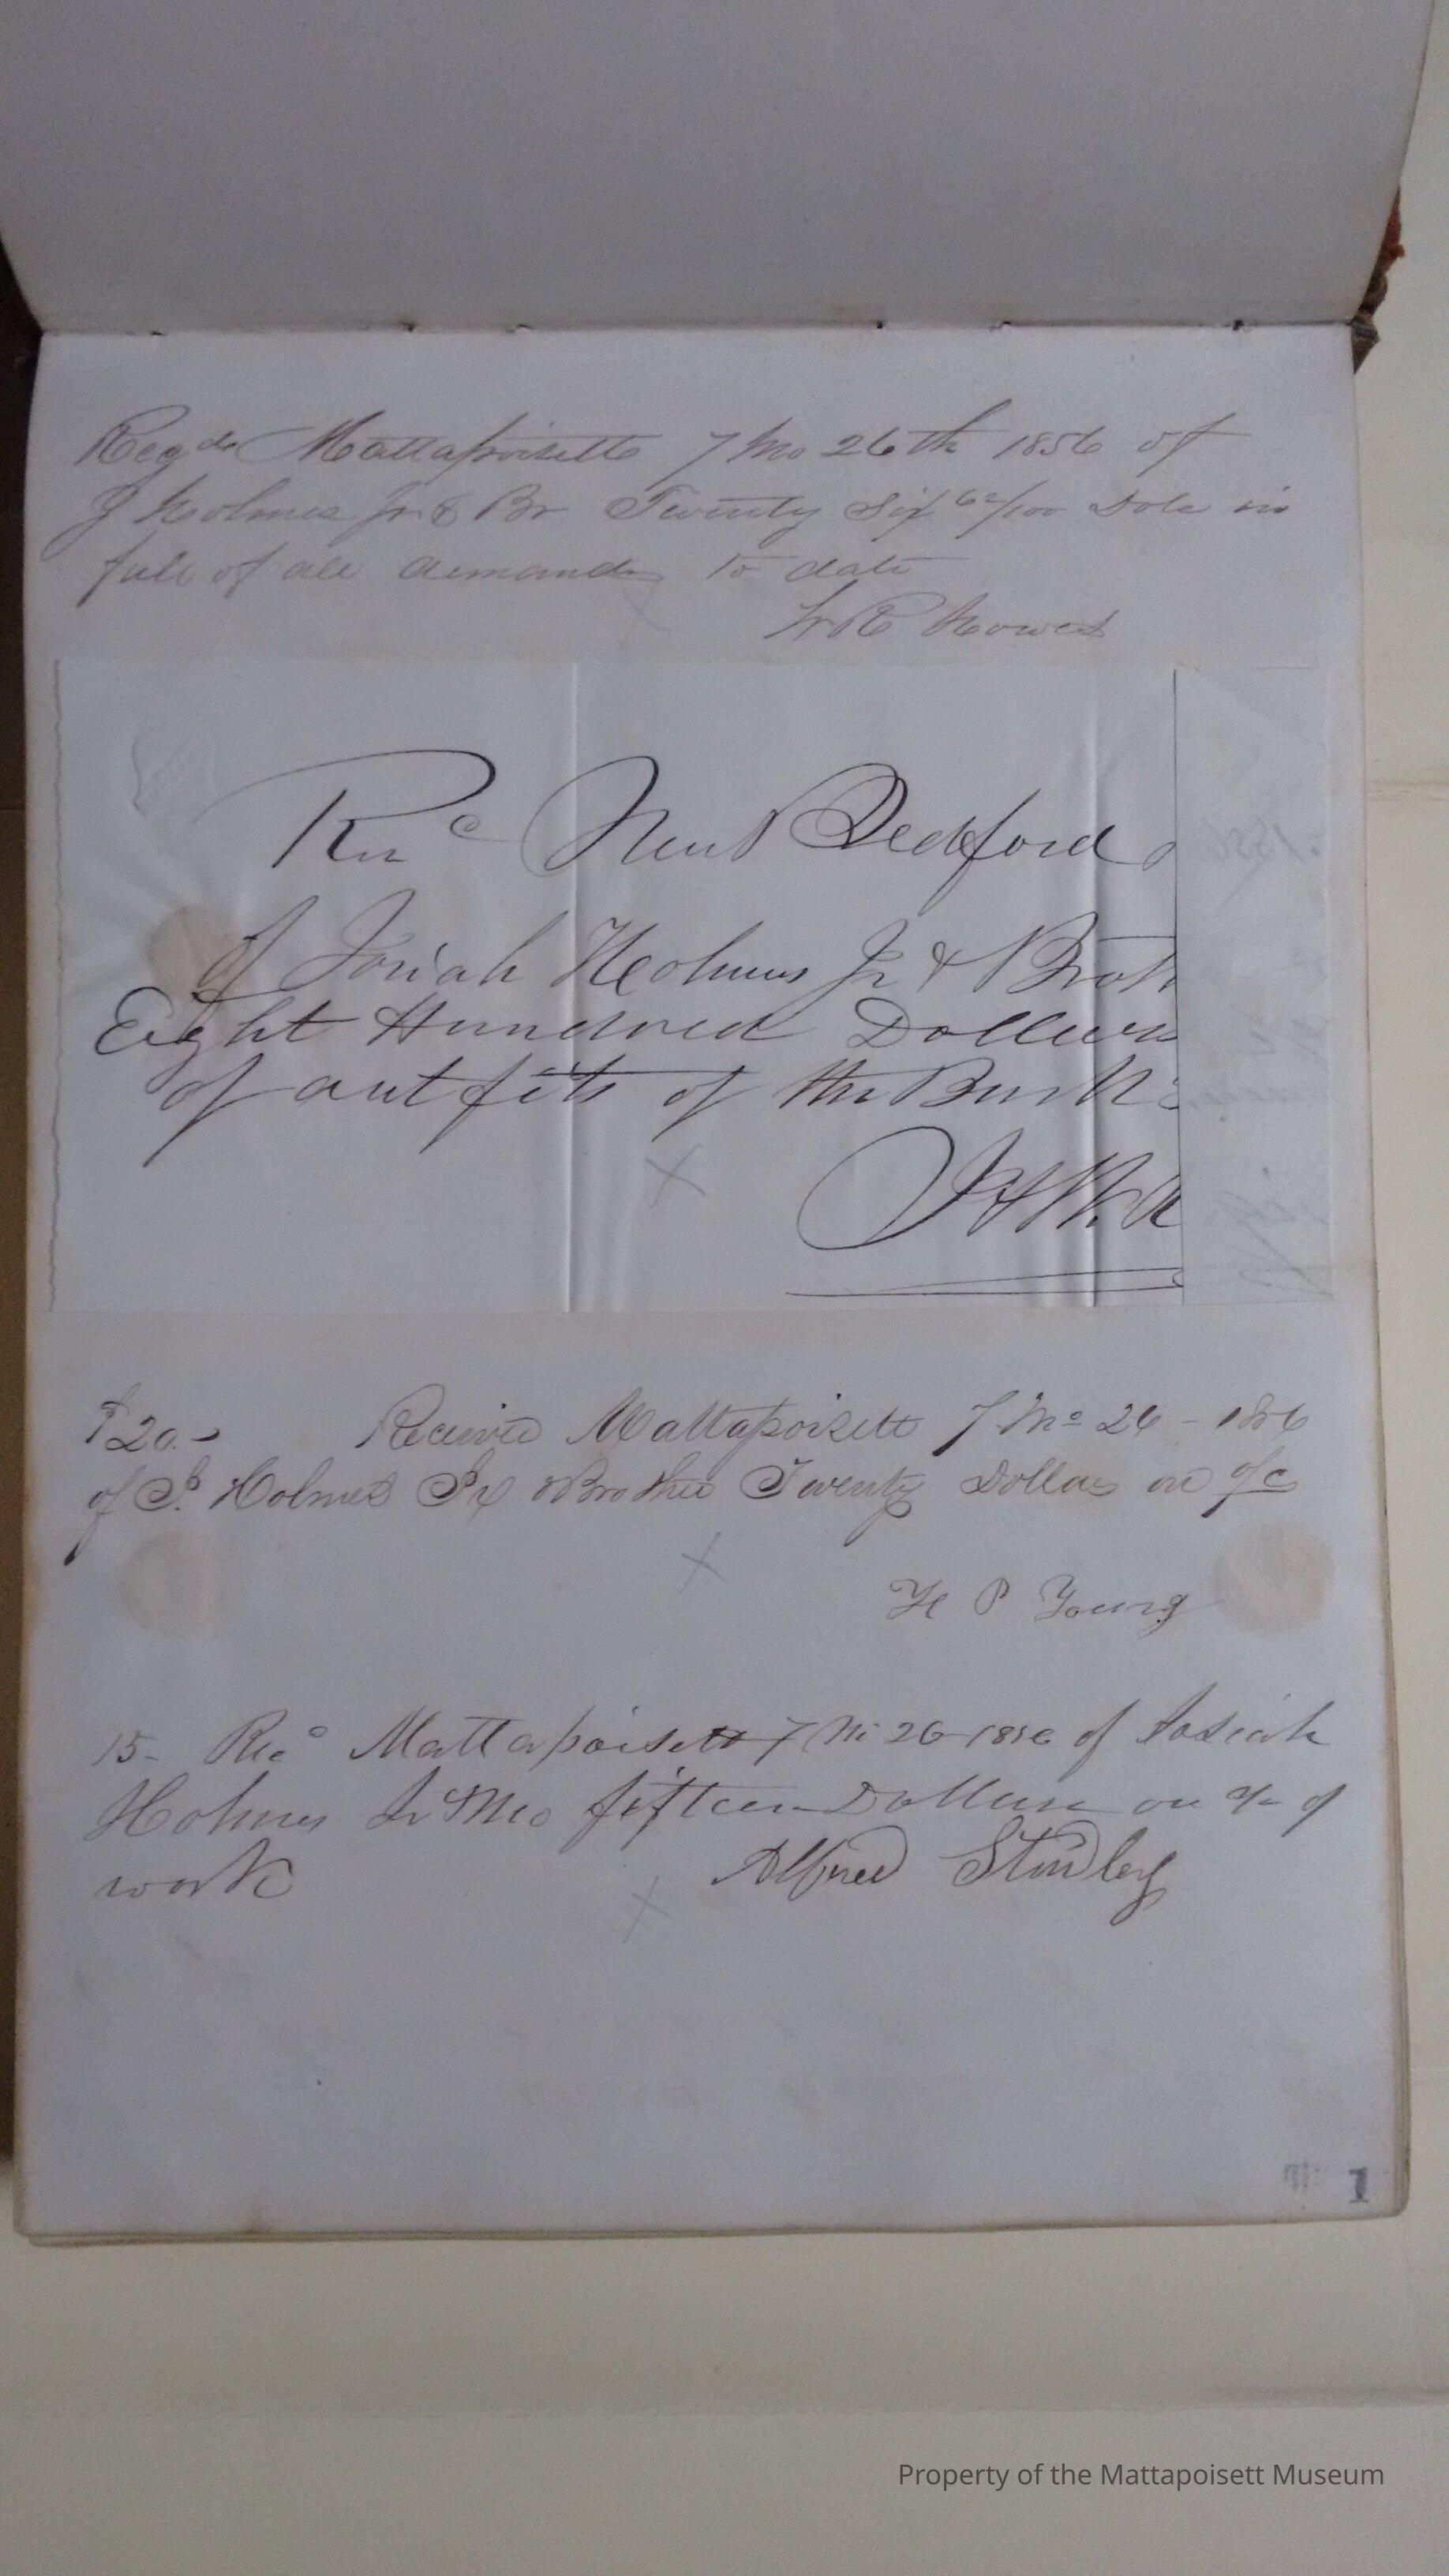 Recd Mattapoisett 7 Mo 26th 1856 of
J Holmes Jr & Br Twenty Six 62/100 Dols in
full of all demands to date
Howes
Rec New Bedford
of Josiah Holmes Jr & Broth
Eight Hundred Dollars
of outfits of the Bark
$20.- Received Mattapoisett 7 Mo 26 - 1856
of J. Holmes Jr & Brother Twenty Dollars on a/c
H P Young
15- Rec Mattapoisett 7 Mo 26 1856 of Josiah
Holmes Jr & Bro fifteen Dollars on a/c of
work Alfred Studley
1
Property of the Mattapoisett Museum